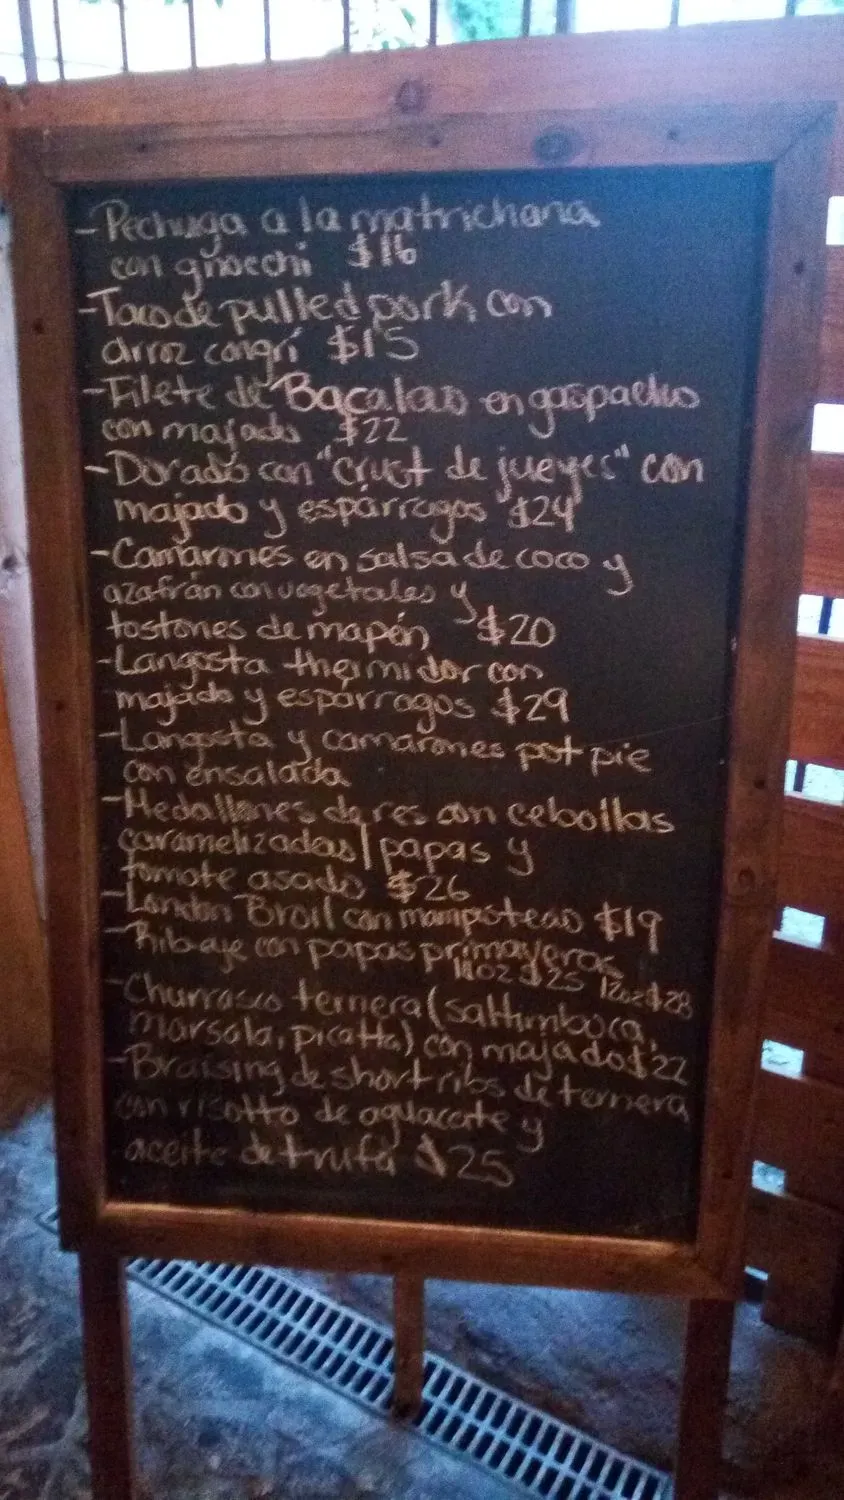 - Pechuga a la matrichana
con gnoechi $16
- Taco de pulled pork con
arroz congrí $15
- Filete de Bacalao en gaspacho
con majado $22
- Dorado con "crust de jueyes" con
majado y espárragos $24
- Camarones en salsa de coco y
azafrán con vegetales y
tostones de mapén $20
- Langosta thermidor con
majado y espárragos $29
- Langosta y camarones pot pie
con ensalada
- Medallones de res con cebollas
caramelizadas / papas y
tomate asado $26
- London Broil con mamposteao $19
- Ribeye con papas primaveras
$25 12oz $28
- Churrasco ternera (saltimboca,
marsala, picatta) con majado $22
- Braising de short ribs de ternera
con risotto de aguacate y
aceite de trufa $25